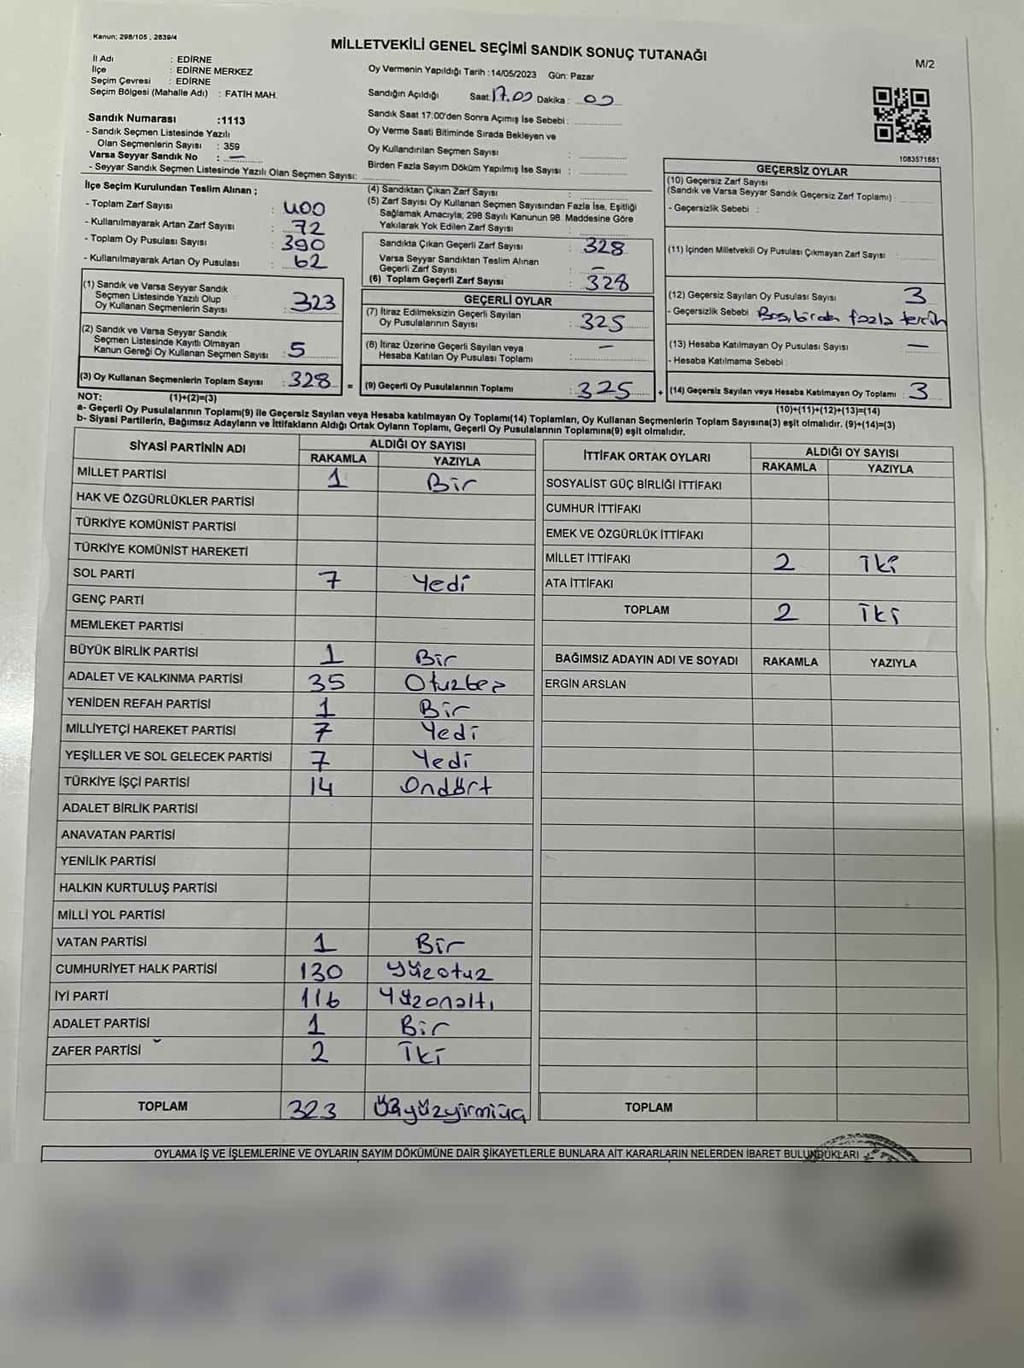 Kanun: 298/105 , 2839/4
MİLLETVEKİLİ GENEL SEÇİMİ SANDIK SONUÇ TUTANAĞI
M/2
İl Adı : EDİRNE
İlçe : EDİRNE MERKEZ
Seçim Çevresi : EDİRNE
Seçim Bölgesi (Mahalle Adı) : FATİH MAH.
Sandık Numarası :1113
- Sandık Seçmen Listesinde Yazılı
Olan Seçmenlerin Sayısı : 359
Varsa Seyyar Sandık No : —
- Seyyar Sandık Seçmen Listesinde Yazılı Olan Seçmen Sayısı:
Oy Vermenin Yapıldığı Tarih :14/05/2023 Gün: Pazar
Sandığın Açıldığı Saat: 17.00 Dakika : 00
Sandık Saat 17:00'den Sonra Açımış İse Sebebi :
Oy Verme Saati Bitiminde Sırada Bekleyen ve
Oy Kullandırılan Seçmen Sayısı :
Birden Fazla Sayım Döküm Yapılmış İse Sayısı :
1083571581
İlçe Seçim Kurulundan Teslim Alınan ;
- Toplam Zarf Sayısı : 400
- Kullanılmayarak Artan Zarf Sayısı : 72
- Toplam Oy Pusulası Sayısı : 390
- Kullanılmayarak Artan Oy Pusulası : 62
(1) Sandık ve Varsa Seyyar Sandık
Seçmen Listesinde Yazılı Olup
Oy Kullanan Seçmenlerin Sayısı : 323
(2) Sandık ve Varsa Seyyar Sandık
Seçmen Listesinde Kayıtlı Olmayan
Kanun Gereği Oy Kullanan Seçmen Sayısı : 5
(3) Oy Kullanan Seçmenlerin Toplam Sayısı : 328 =
(4) Sandıktan Çıkan Zarf Sayısı :
(5) Zarf Sayısı Oy Kullanan Seçmen Sayısından Fazla İse, Eşitliği
Sağlamak Amacıyla, 298 Sayılı Kanunun 98. Maddesine Göre
Yakılarak Yok Edilen Zarf Sayısı :
Sandıkta Çıkan Geçerli Zarf Sayısı : 328
Varsa Seyyar Sandıktan Teslim Alınan
Geçerli Zarf Sayısı : —
(6) Toplam Geçerli Zarf Sayısı : 328
GEÇERLİ OYLAR
(7) İtiraz Edilmeksizin Geçerli Sayılan
Oy Pusulalarının Sayısı : 325
(8) İtiraz Üzerine Geçerli Sayılan veya
Hesaba Katılan Oy Pusulası Toplamı : —
(9) Geçerli Oy Pusulalarının Toplamı : 325 +
GEÇERSİZ OYLAR
(10) Geçersiz Zarf Sayısı
(Sandık ve Varsa Seyyar Sandık Geçersiz Zarf Toplamı) :
- Geçersizlik Sebebi :
(11) İçinden Milletvekili Oy Pusulası Çıkmayan Zarf Sayısı :
(12) Geçersiz Sayılan Oy Pusulası Sayısı : 3
- Geçersizlik Sebebi : Boş, birden fazla tercih
(13) Hesaba Katılmayan Oy Pusulası Sayısı : —
- Hesaba Katılmama Sebebi :
(14) Geçersiz Sayılan veya Hesaba Katılmayan Oy Toplamı : 3
NOT: (1)+(2)=(3)
(10)+(11)+(12)+(13)=(14)
a- Geçerli Oy Pusulalarının Toplamı(9) ile Geçersiz Sayılan veya Hesaba katılmayan Oy Toplamı(14) Toplamları, Oy Kullanan Seçmenlerin Toplam Sayısına(3) eşit olmalıdır. (9)+(14)=(3)
b- Siyasi Partilerin, Bağımsız Adayların ve İttifakların Aldığı Ortak Oyların Toplamı, Geçerli Oy Pusulalarının Toplamına(9) eşit olmalıdır.
SİYASİ PARTİNİN ADI ALDIĞI OY SAYISI
RAKAMLA YAZIYLA
MİLLET PARTİSİ 1 Bir
HAK VE ÖZGÜRLÜKLER PARTİSİ
TÜRKİYE KOMÜNİST PARTİSİ
TÜRKİYE KOMÜNİST HAREKETİ
SOL PARTİ 7 Yedi
GENÇ PARTİ
MEMLEKET PARTİSİ
BÜYÜK BİRLİK PARTİSİ 1 Bir
ADALET VE KALKINMA PARTİSİ 35 Otuzbeş
YENİDEN REFAH PARTİSİ 1 Bir
MİLLİYETÇİ HAREKET PARTİSİ 7 Yedi
YEŞİLLER VE SOL GELECEK PARTİSİ 7 Yedi
TÜRKİYE İŞÇİ PARTİSİ 14 Ondört
ADALET BİRLİK PARTİSİ
ANAVATAN PARTİSİ
YENİLİK PARTİSİ
HALKIN KURTULUŞ PARTİSİ
MİLLİ YOL PARTİSİ
VATAN PARTİSİ 1 Bir
CUMHURİYET HALK PARTİSİ 130 Yüzotuz
İYİ PARTİ 116 Yüzonaltı
ADALET PARTİSİ 1 Bir
ZAFER PARTİSİ 2 İki
TOPLAM 323 Üçyüzyirmiüç
İTTİFAK ORTAK OYLARI ALDIĞI OY SAYISI
RAKAMLA YAZIYLA
SOSYALİST GÜÇ BİRLİĞİ İTTİFAKI
CUMHUR İTTİFAKI
EMEK VE ÖZGÜRLÜK İTTİFAKI
MİLLET İTTİFAKI 2 İki
ATA İTTİFAKI
TOPLAM 2 İki
BAĞIMSIZ ADAYIN ADI VE SOYADI RAKAMLA YAZIYLA
ERGİN ARSLAN
TOPLAM
OYLAMA İŞ VE İŞLEMLERİNE VE OYLARIN SAYIM DÖKÜMÜNE DAİR ŞİKAYETLERLE BUNLARA AİT KARARLARIN NELERDEN İBARET BULUNDUKLARI